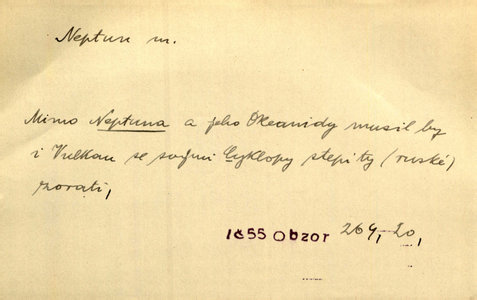 Neptun m.
Mimo Neptuna a jeho Okeanidy musil by
i Vulkan se svými Cyklopy stepi ty (ruské)
zorati,
1855 Obzor 264, 20,